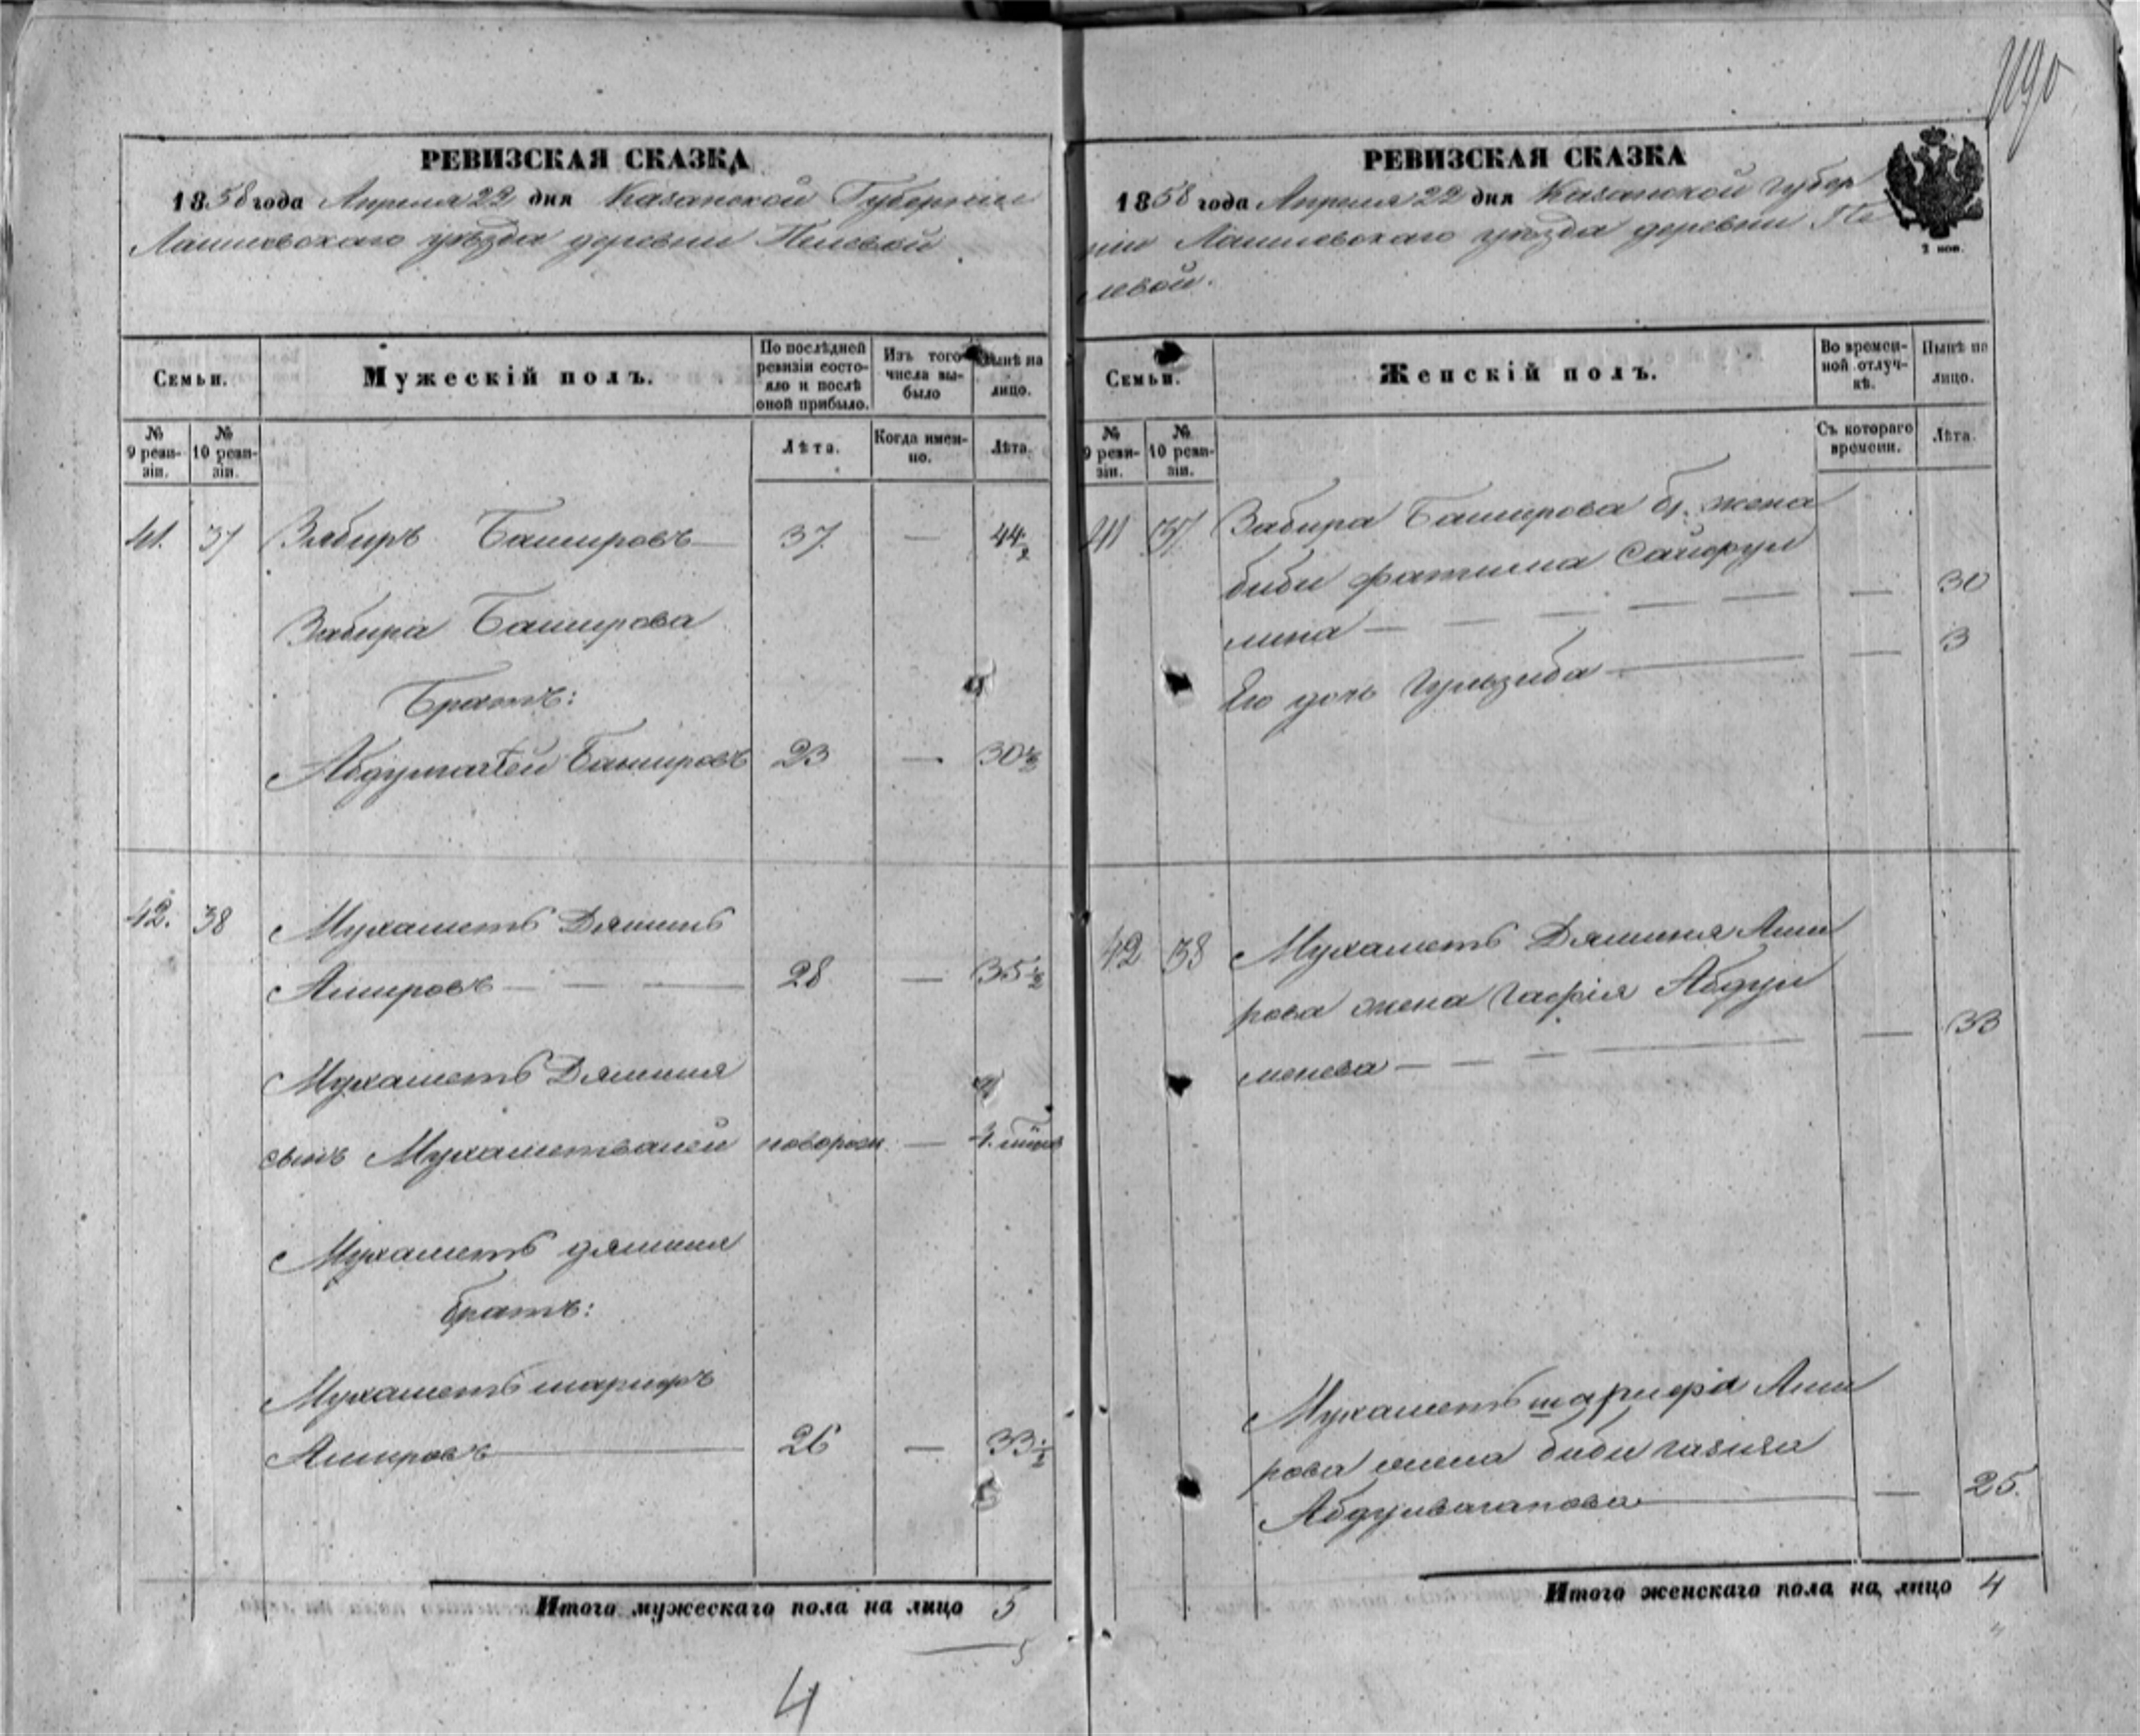 1190
РЕВИЗСКАЯ СКАЗКА
1858 года Апреля 22 дня Казанской Губернии
Лаишевскаго уѣзда деревни Пелевой
Семьи.
Мужескій полъ.
По послѣдней ревизіи состояло и послѣ оной прибыло.
Изъ того числа выбыло
Нынѣ на лицо.
№ 9 ревизіи.
№ 10 ревизіи.
Лѣта.
Когда именно.
Лѣта.
41. 37 Зябиръ Башировъ 37 — 44 1/2
Зябира Баширова
Братъ:
Башировъ 23 — 30 1/2
42. 38 Мухаметъ Дяминъ
Амировъ — — 28 — 35 1/2
Мухаметъ Дямина
сынъ Мухаметвалей новорож. — 4.
Мухаметъ дямина
братъ:
Мухаметъ шарифъ
Амировъ 26 — 33 1/2
Итого мужескаго пола на лицо 5
5
4
РЕВИЗСКАЯ СКАЗКА
1858 года Апреля 22 дня Казанской Губер
ніи Лаишевскаго уѣзда деревни Пе
левой.
2 коп.
Семьи.
Женскій полъ.
Во временной отлучкѣ.
Нынѣ на лицо.
№ 9 ревизіи.
№ 10 ревизіи.
Съ котораго времени.
Лѣта.
41 37 Забира Баширова жена
биби фатима Сайфул
лина — — — — — — 30
Его дочь Гульзиба — 3
42 38 Мухаметъ Дямина Ами
рова жена Гафія Абдул
менева — — — — — 33
Мухаметъ шарифа Ами
рова жена биби газиза
Абдулвагапова — 25.
Итого женскаго пола на лицо 4